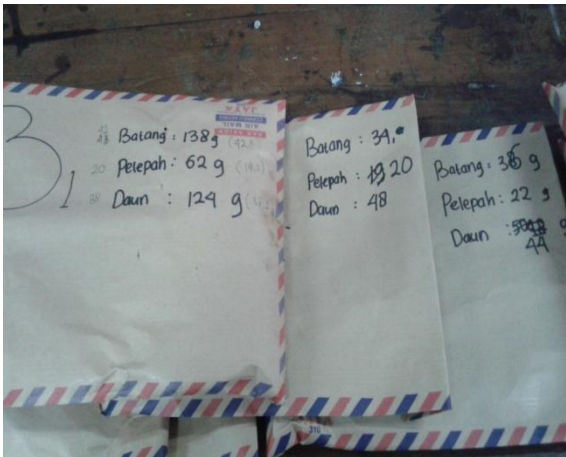 B1
Batang : 138 g
20 Pelepah : 62 g
Daun : 124 g
JAYA
AIR MAIL
Batang : 34,
Pelepah : 20
Daun : 48
Batang : 36 g
Pelepah : 22 g
Daun : 44 g